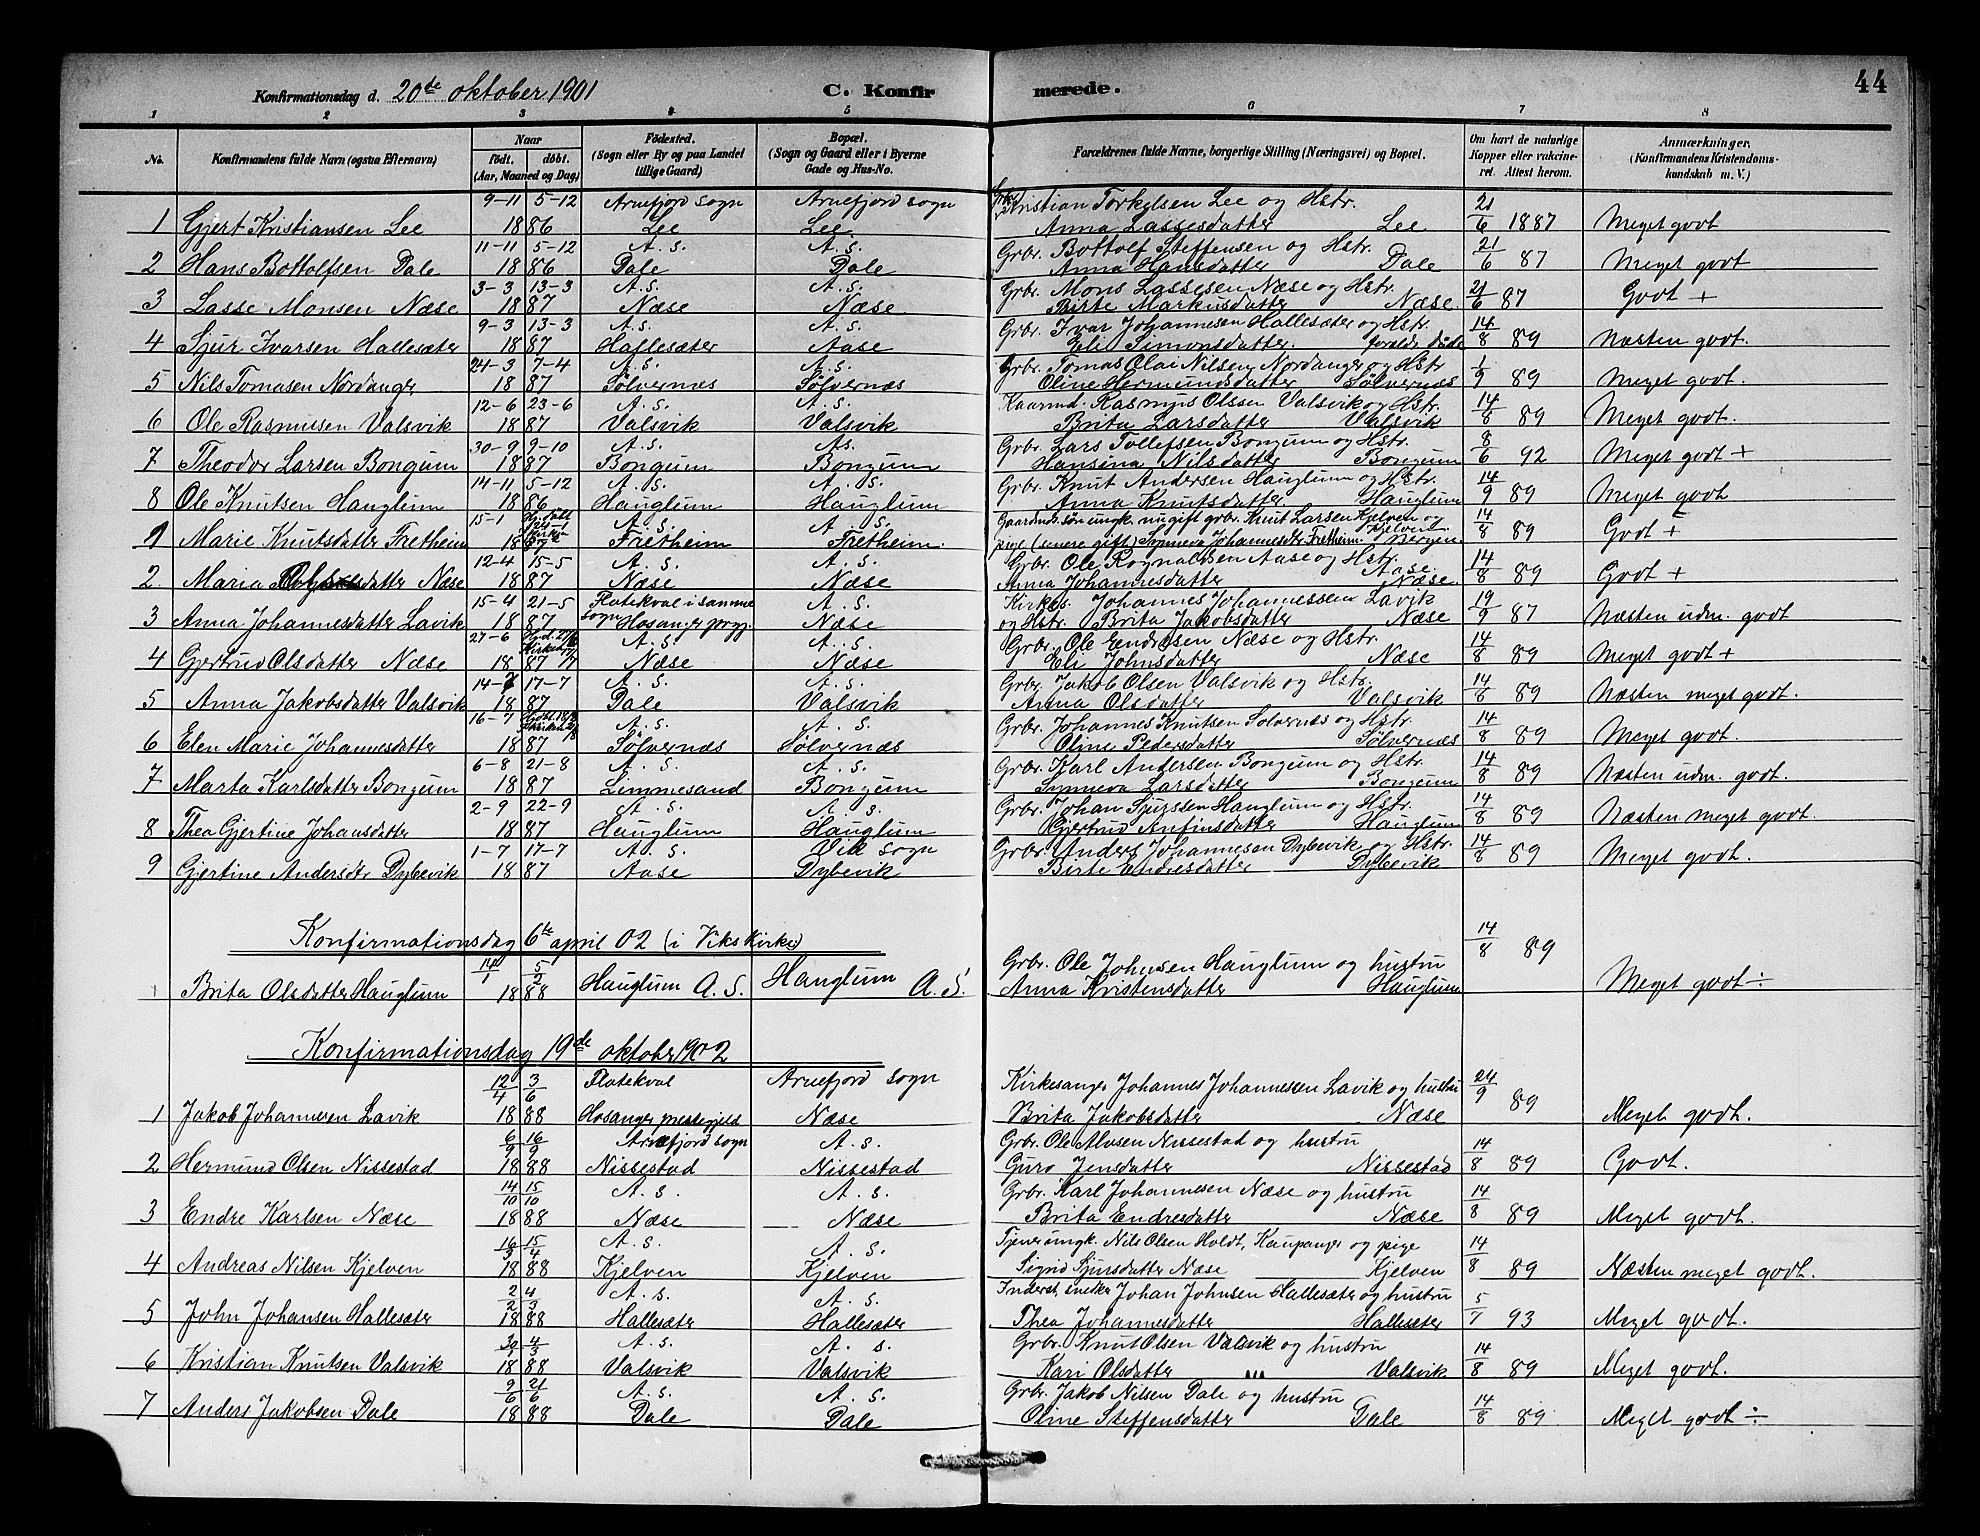 44
Konfirmationsdag d. 20de oktober 1901
C. Konfirmerede.
1 2 3 4 5 6 7 8
No.
Konfirmandens fulde Navn (ogsaa Efternavn)
Naar
født. døbt.
(Aar, Maaned og Dag)
Fødested.
(Sogn eller By og paa Landet
tillige Gaard)
Bopæl.
(Sogn og Gaard eller i Byerne
Gade og Hus-No.
Forældrenes fulde Navne, borgerlige Stilling (Næringsvei) og Bopæl.
Om havt de naturlige
Kopper eller vakcine-
ret. Attest herom.
Anmærkninger.
(Konfirmandens Kristendoms-
kundskab m. V.)
9-11 5-12 Arnefjord sogn Arnefjord sogn Grbr. Kristian Torkelsen Lee og Hstr. 21
1 Gjert Kristiansen Lee 1886 Lee Lee Anna Lassesdatter Lee 6 1887 Meget godt
11-11 5-12 A. S. A. S. Grbr. Bottolf Steffensen og Hstr. 21
2 Hans Bottolfsen Dale 1886 Dale Dale Anna Hansdatter Dale 6 87 Meget godt
3-3 13-3 A. S. A. S. Grbr. Mons Lassesen Næse og Hstr. 21
3 Lasse Monsen Næse 1887 Næse Næse Birte Markusdatter Næse. 6 87 Godt +
9-3 13-3 A. S. A. S. Grbr. Ivar Johannesen Hallesæter og Hstr. 14
4 Sjur Ivarsen Hallesæter 1887 Hallesæter Aase Eli Simonsdatter. 8 89 Næsten godt.
24-3 7-4 A. S. A. S. Grbr. Tomas Olai Nilsen Nordanger og Hstr 1
5 Nils Tomasen Nordanger 1887 Sølvernæs Sølvernæs Oline Hermundsdatter Sølvernæs 9 89 Meget godt.
12-6 23-6 A. S. A. S. Kaarmd. Rasmus Olsen Valsvik og Hstr. 14
6 Ole Rasmusen Valsvik 1887 Valsvik Valsvik Brita Larsdatter Valsvik 8 89 Meget godt.
30-9 9-10 A. S. A. S. Grbr. Lars Tollefsen Bongum og Hstr. 8
7 Theodor Larsen Bongum 1887 Bongum Bongum Hansina Nilsdatter Bongum 6 92 Meget godt +
14-11 5-12 A. S. A. S. Grbr. Knut Andersen Hauglum og Hstr. 14
8 Ole Knutsen Hauglum 1886 Hauglum Hauglum Anna Knutsdatter. Hauglum 9 89 Meget godt
15-1 A. S. A. S. ungk. nu gift grbr. Knut Larsen Kjelven og 14
1 Marie Knutsdatter Fretheim 1887 Fretheim Fretheim. pige (senere gift) Synneva Johannesdtr Fretheim. 8 89 Godt ±
12-4 15-5 A. S. A. S. Grbr. Ole Rognaldsen Aase og Hstr. Aase. 14
2. Maria Olsdatter Næse 1887 Næse Næse Anna Johannesdatter Næse. 8 89 Godt +
15-4 21-5 Flatekval i samme A. S. Kirkes. Johannes Johannessen Lavik 19
3 Anna Johannesdatter Lavik 1887 sogn Hosanger prgj. Næse og Hstr. Brita Jakobsdatter Næse 9 87 Næsten udm. godt
27-6 A. S. A. S. Grbr. Ole Endresen Næse og Hstr. 14
4 Gjertrud Olsdatter Næse 1887 Næse Næse Eli Johnsdatter Næse 8 89 Meget godt +
14-7 17-7 A. S. A. S. Grbr. Jakob Olsen Valsvik og Hstr. 14
5 Anna Jakobsdatter Valsvik 1887 Dale Valsvik Anna Olsdatter Valsvik 8 89 Næsten meget godt.
16-7 A. S. A. S. Grbr. Johannes Knutsen Sølvernæs og Hstr. 14
6 Elen Marie Johannesdatter 1887 Sølvernæs Sølvernæs Oline Pedersdatter Sølvernæs 8 89 Meget godt.
6-8 21-8 A. S. A. S. Grbr. Karl Andersen Bongum og Hstr. 14
7 Marta Karlsdatter Bongum 1887 Limmesand Bongum Synneva Larsdatter Bongum 8 89 Næsten udm. godt.
2-9 22-9 A. S. A. S. Grbr. Johan Sjurssen Hauglum og Hstr. 14
8 Thea Gjertine Johansdatter 1887 Hauglum Hauglum Gjertrud Anfinsdatter Hauglum 8 89 Næsten meget godt.
1-7 17-7 A. S. Vik sogn Grbr. Anders Johannesen Dybevik og Hstr. 14
9 Gjertine Andersdtr Dybevik 1887 Aase Dybevik Birte Endresdatter Dybevik 8 89 Meget godt.
Konfirmationsdag 6te april 02 (i Viks Kirke)
14/1 5/2 Grbr. Ole Johnsen Hauglum og hustru 14/8 89
1 Brita Olsdatter Hauglum 1888 Hauglum A. S. Hauglum A. S. Anna Kristensdatter Hauglum Meget godt ÷
Konfirmationsdag 19de oktober 1902
12/4 3/6 Flatekval Arnefjord sogn Kirkesanger Johannes Johannessen Lavik og hustru 24/9
1 Jakob Johannesen Lavik 1888 Hosanger prestegjeld Næse Brita Jakobsdatter Næse 89 Meget godt.
6/9 16/9 Arnefjord sogn A. S. Grbr. Ole Olsen Nissestad og hustru 14
2 Hermund Olsen Nissestad 1888 Nissestad Nissestad Guro Jensdatter Nissestad 8 89 Godt.
14/10 15/10 A. S. A. S. Grbr. Karl Johannesen Næse og hustru 14
3 Endre Karlsen Næse 1888 Næse Næse Brita Endresdatter Næse 8 89 Meget godt.
16/3 15/4 A. S. A. S. Tjener ungk. Nils Olsen Holdt, Kaupanger og pige 14
4 Andreas Nilsen Kjelven 1888 Kjelven Kjelven Sigrid Sjursdatter Næse Kjelven 8 89 Næsten meget godt.
2/2 4/3 A. S. A. S. Inderst, snedker Johan Johnsen Hallesæter og hustru 5
5 John Johansen Hallesæter 1888 Hallesæter Hallesæter Thea Johannesdatter Hallesæter 7 93 Meget godt.
30/1 4/3 A. S. A. S. Grbr. Knut Olsen Valsvik og hustru 14
6 Kristian Knutsen Valsvik 1888 Valsvik Valsvik Kari Olsdatter Valsvik 8 89 Meget godt.
9/6 21/6 A. S. A. S. Grbr. Jakob Nilsen Dale og hustru 14
7 Anders Jakobsen Dale 1888 Dale Dale Oline Steffensdatter Dale 8 89 Meget godt ÷